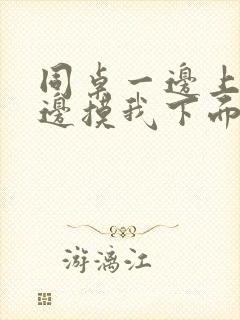 同桌一邊上
邊摸我下面
游漓江